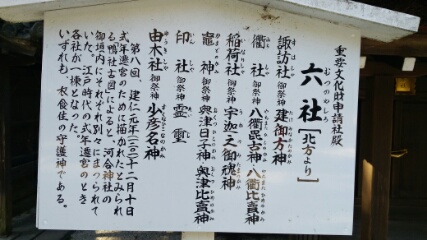 重要文化財申請社殿
むつのやしろ
六社［北方より］
諏訪社 御祭神 建御方神
衢社 御祭神 八衢毘古神・八衢比賣神
稲荷社 御祭神 宇迦之御魂神
竈神 御祭神 奥津日子神・奥津比賣神
印社 御祭神 霊璽
由木社 御祭神 少彦名神
第八回、建仁元年(一二〇一)十二月十日
式年遷宮のために描かれたとみられ
る鴨社古図によると、河合神社の
御垣内にそれぞれ別々にまつられて
いた。江戸時代の式年遷宮のとき
各社が一棟となった。
いずれも、衣食住の守護神である。